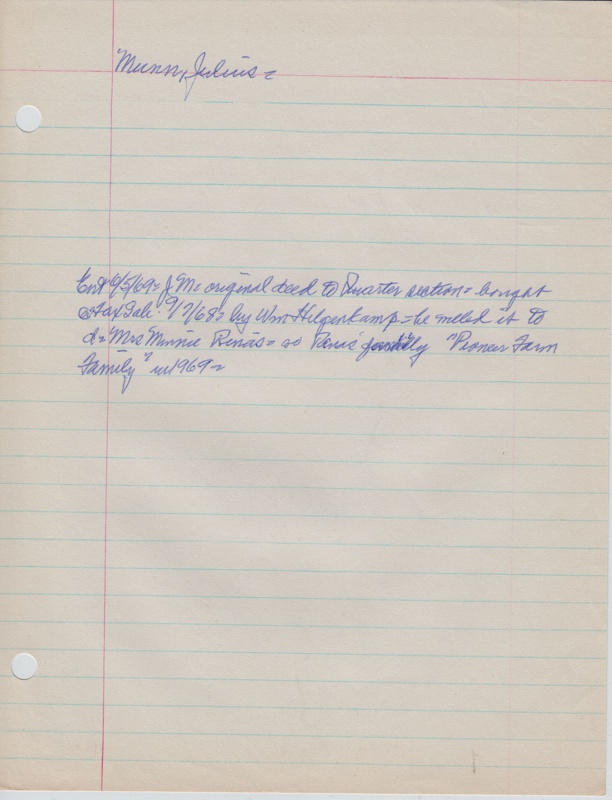 Munn, Julius =
Ent 6/5/69 = J Mc original deed to Quarter section = bought
@ Tax Sale. 9/7/68 = by Wm Hilgenkamp = he willed it to
d = Mrs Minnie Rinas = so Penas family "Pioneer Farm
Family" in 1969 =